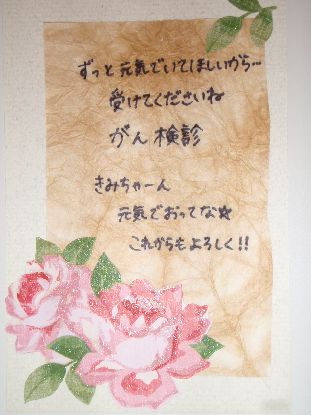 ずっと元気でいてほしいから…
受けてくださいね
がん検診
きみちゃーん
元気でおってな☆
これからもよろしく!!